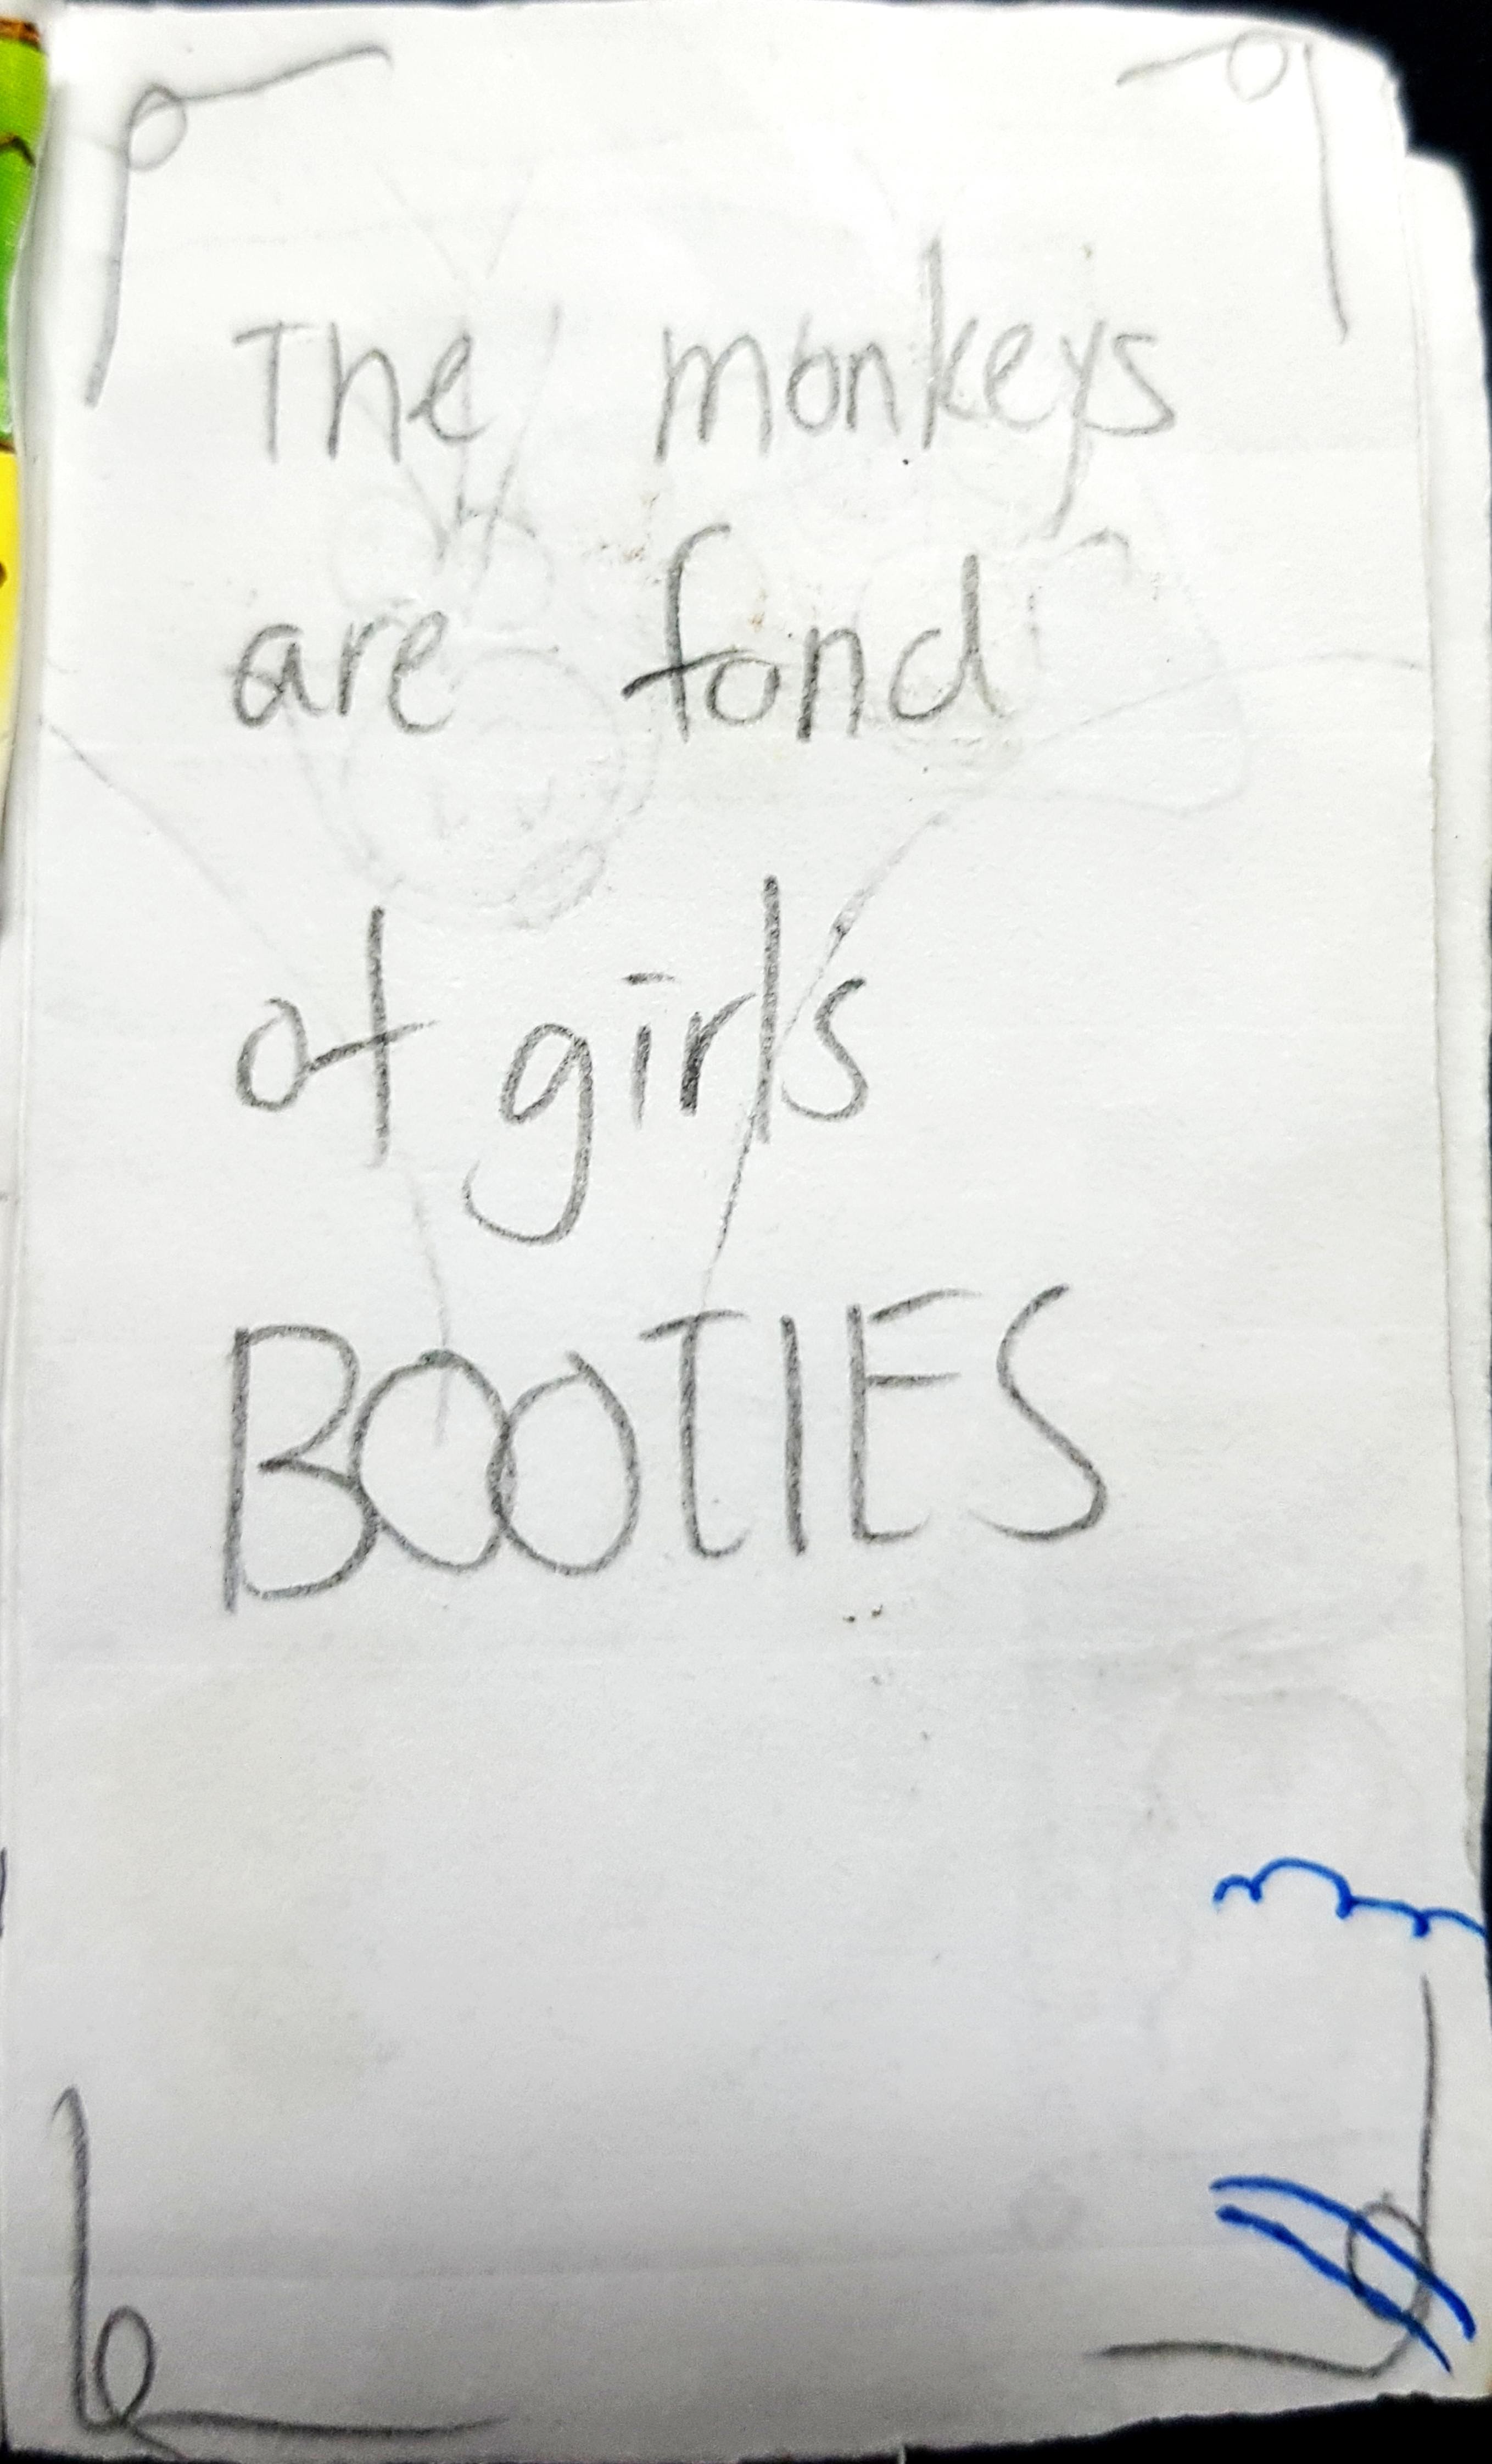 The monkeys
are fond
of girls
BOOTIES